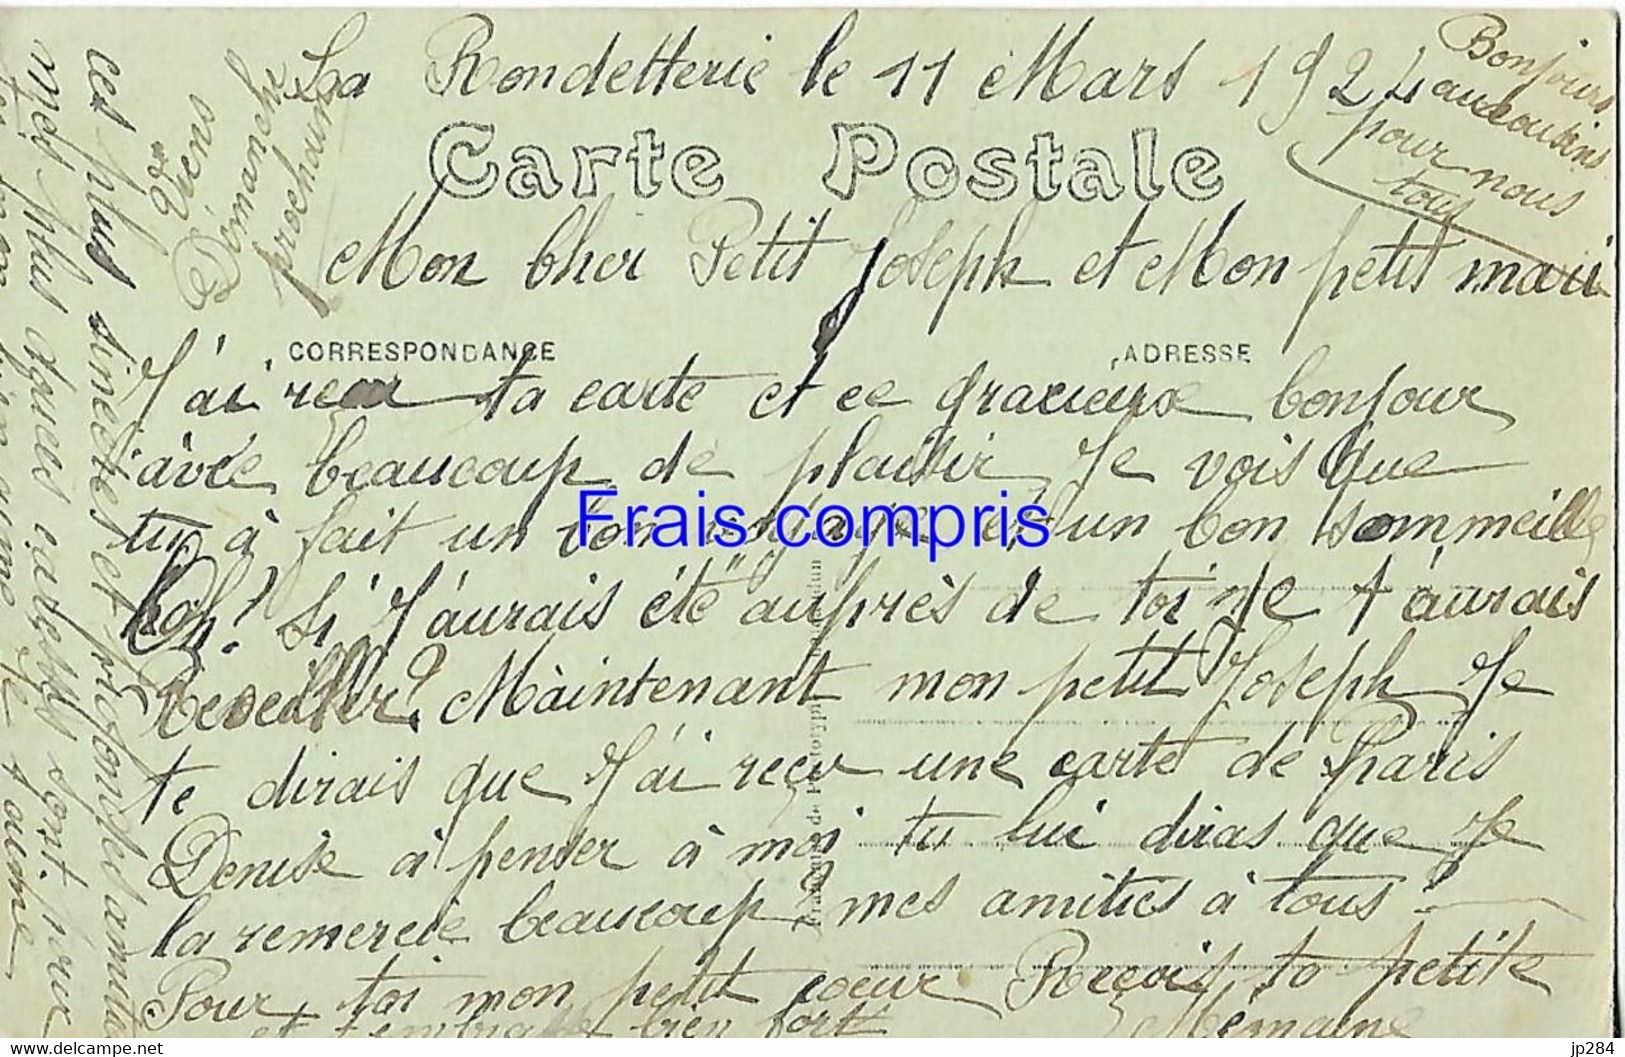 La Rondetterie le 11 Mars 1924
Bonjours
aux cousins
pour nous
tous
Viens
Dimanche
prochain
Carte Postale
Mon Cher Petit Joseph et Mon petit mari
CORRESPONDANCE
ADRESSE
J'ai reçu ta carte et ce gracieux bonjour
avec beaucoup de plaisir Je vois que
tu à fait un bon voyage et un bon sommeille
Oh! Si J'aurais été auprès de toi Je t'aurais
Reveiller? Maintenant mon petit Joseph Je
te dirais que J'ai reçu une carte de Paris
Denise à penser à moi tu lui diras que Je
la remercie beaucoup mes amitiés à tous!
Pour toi mon petit coeur Reçois ta petite
et t'embrasse bien fort
Germaine
ces plus sincères et profondes amitiés
mes plus douces caresses sont pour
toi Je t'aime
Frais compris
PP284